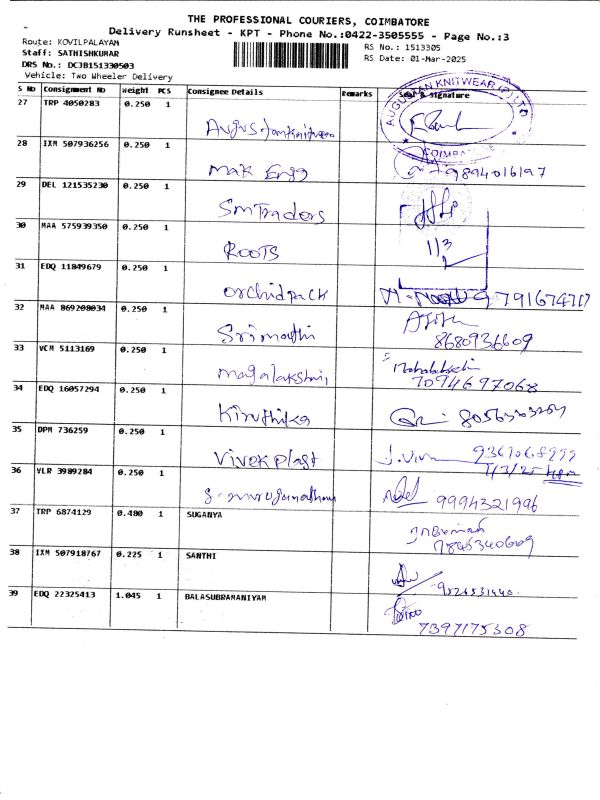 THE PROFESSIONAL COURIERS, COIMBATORE
Delivery Runsheet - KPT - Phone No.:0422-3505555 - Page No.:3
Route: KOVILPALAYAM
Staff: SATHISHKUMAR
DRS No.: DCJB151330503
Vehicle: Two Wheeler Delivery
RS No.: 1513305
RS Date: 01-Mar-2025
S No Consignment No Weight PCS Consignee Details Remarks Signature
27 TRP 4050283 0.250 1
AUGUSTAN KNITWEAR (P) LTD
COIMBATORE
28 IXM 507936256 0.250 1
Mak Engg 9894016197
29 DEL 121535230 0.250 1
Sm Traders
30 MAA 575939350 0.250 1
ROOTS 1/3
31 EDQ 11849679 0.250 1
orchid pack
32 MAA 869208034 0.250 1
Srimathi 8680936609
33 VCM 5113169 0.250 1
magalakshmi 7094697068
34 EDQ 16057294 0.250 1
Kiruthika
35 DPM 736259 0.250 1
Vivek plast
1/3/25
36 VLR 3989284 0.250 1
9994321996
37 TRP 6874129 0.480 1 SUGANYA
38 IXM 507918767 0.225 1 SANTHI
39 EDQ 22325413 1.045 1 BALASUBRAMANIYAM
7397175308